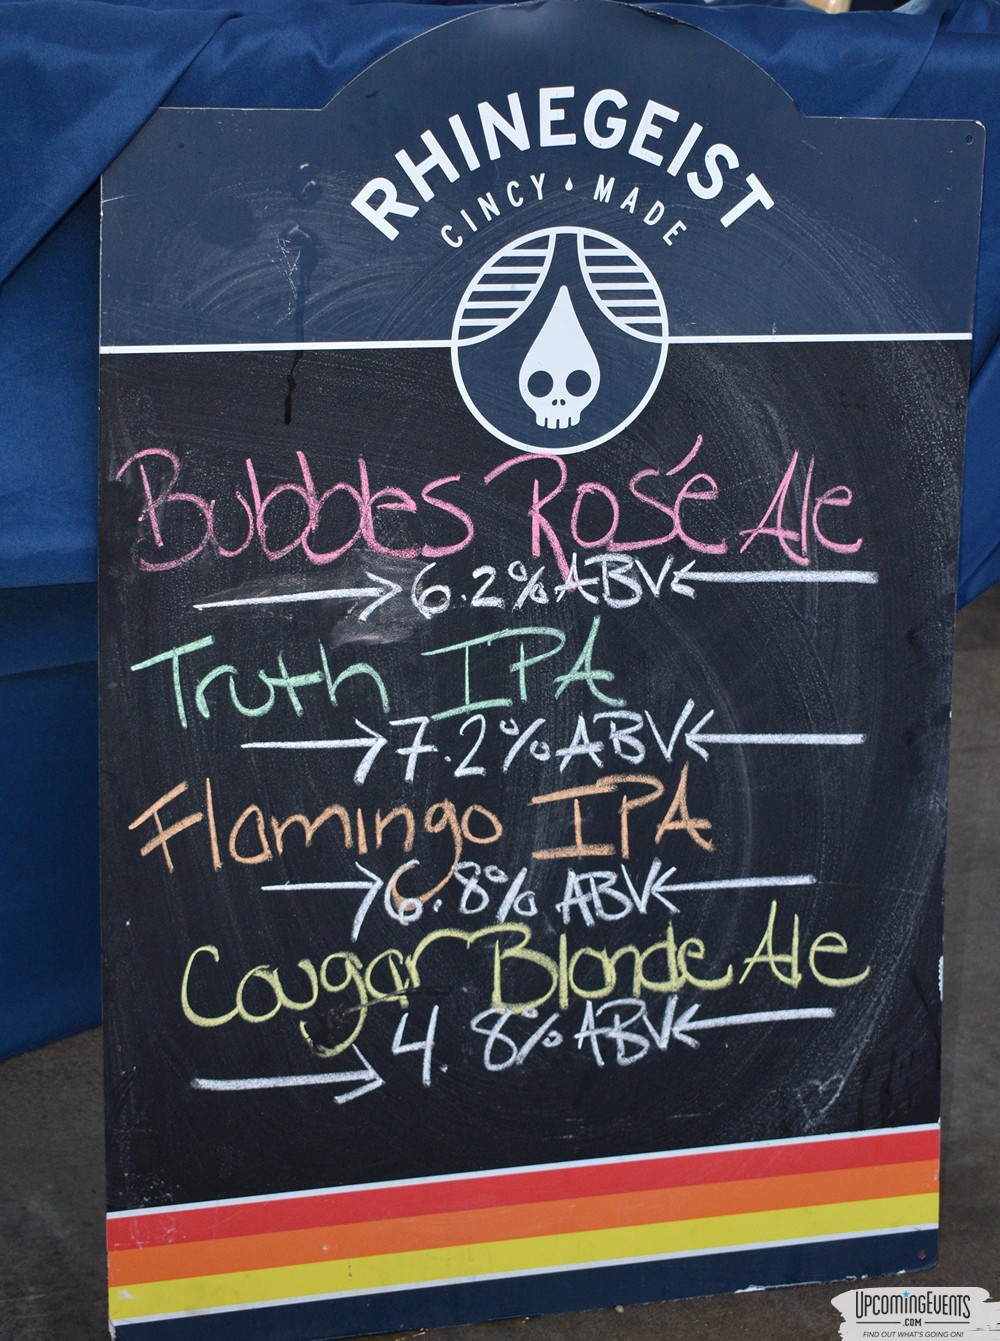 RHINEGEIST
CINCY MADE
Bubbles Rosé Ale
6.2% ABV
Truth IPA
7.2% ABV
Flamingo IPA
6.8% ABV
Cougar Blonde Ale
4.8% ABV
UPCOMINGEVENTS
.COM
FIND OUT WHAT'S GOING ON!